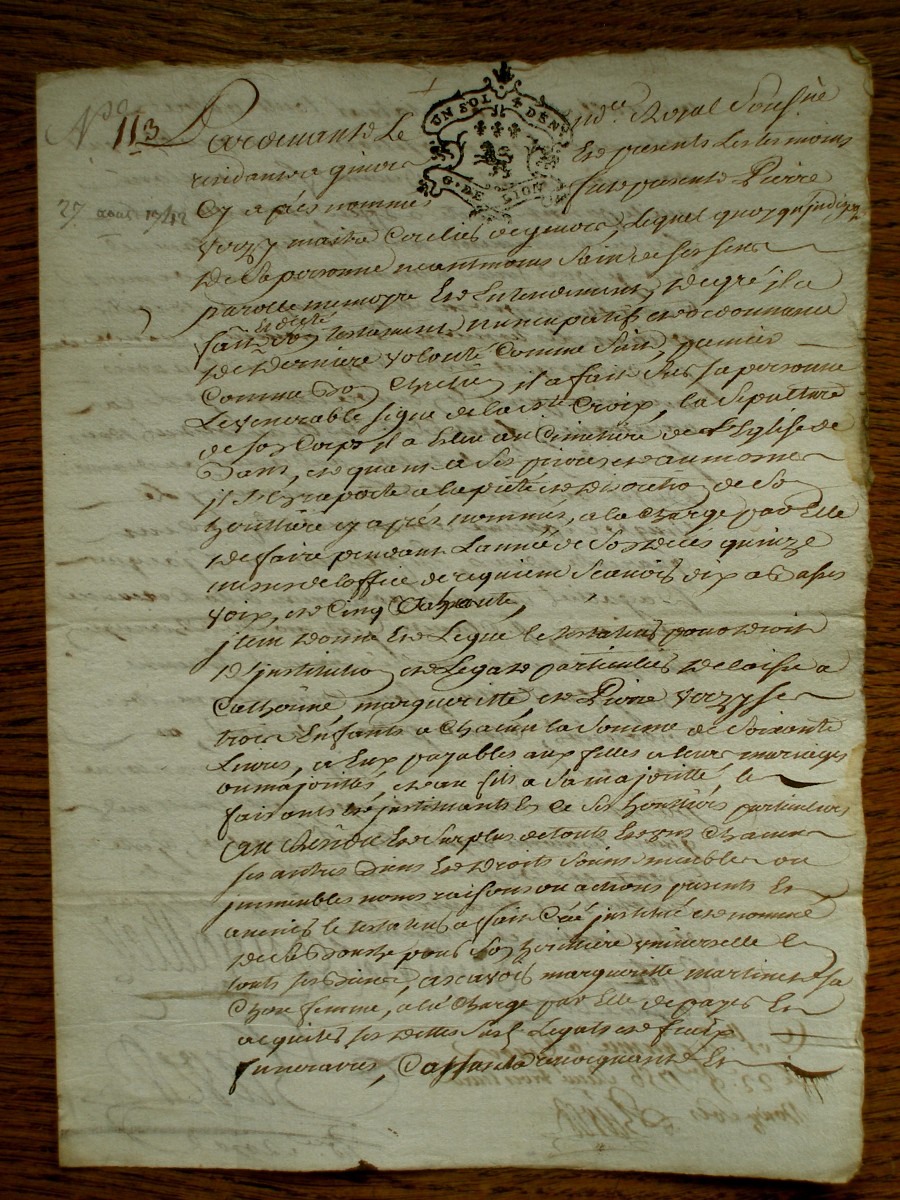 N° 113 Pardevant Le nore. Royal Soussné
residant a givors et presents Les tesmoins
cy apres nommés fut present Pierre
27 aout 1742
Verzy maitre Cordier de givors, Lequel quoy qu'indisposé
De Sa personne neantmoins Sain de ses sens
parolle memoyre Et Entendement, De gré il a
fait et dicté son testament nuncupatif et ordonnance
De Derniere volonté Comme Suit, premier
Comme bon Chretien il a fait Sur sa personne
Le venerable signe de la Ste Croix, la Sepulture
de son Corps il a Elue au Cimetiere de L'Eglise de
Bans, et quant a Ses prieres et aumones
il s'En raporte a la pieté et Devotion de Son
heritiere cy apres nommée, a la Charge par Elle
De faire pendant L'année de Son Deces quinze
messes de L'office de requiem Scavoir dix a Basses
voix, et Cinq a haute,
jtem Donne Et Legue le testateur pour Droit
D'jnstitution et Legat particulier Delaisse a
Catherine, margueritte et Pierre verzy ses
trois Enfants a Chacun la Somme de Soixante
Livres, a Eux payables aux filles a leurs mariages
ou majorités, et au fils a Sa majorité, les
faisants et jnstituants En Ce Ses heritiers particuliers
Au Residu Et Surplus de touts Et uns Chacuns
ses autres Biens Et Droits Soient meubles ou
jmmeubles noms raisons ou actions presents Et
avenir le testateur a fait Créé jnstitué et nommé
De Sa Bouche pour Son heritiere universelle de
touts ses Biens, a scavoir margueritte martinet Sa
Chere femme, a la Charge par Elle de payer Et
acquiter ses Dettes Susd. Legats et fraix
funeraires, Cassant revocquant Et